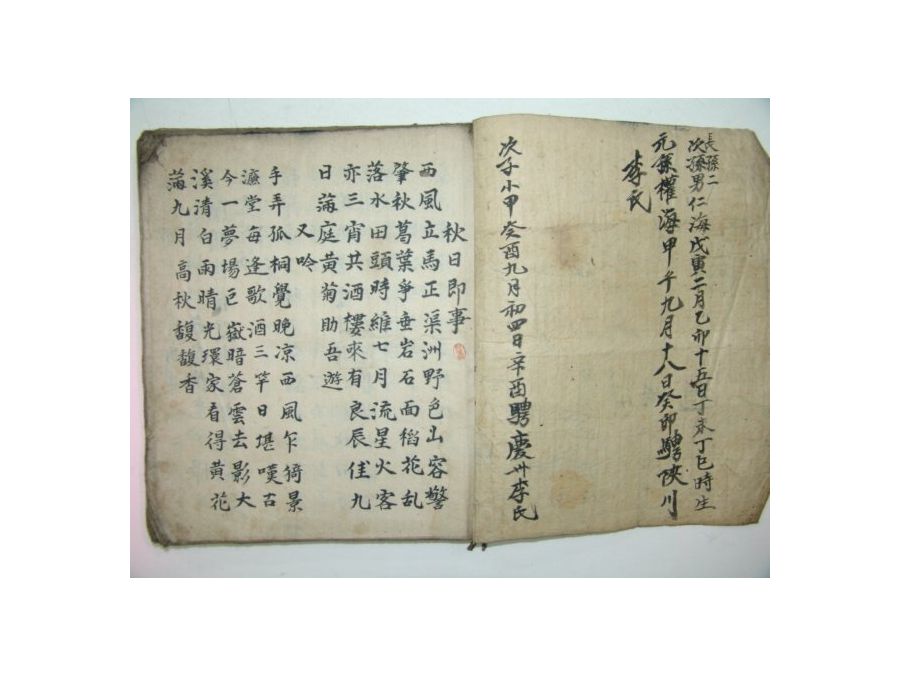 長孫二
次孫男仁海戊寅二月乙卯十五日丁未丁巳時生
元孫權海甲午九月十八日癸卯聘陜川
李氏
次子小甲癸酉九月初四日辛酉聘慶州李氏
秋日即事
西風立馬正渠洲野色山容警
肇秋葛葉爭垂岩石面稻花乱
落水田頭時維七月流星火客
亦三宵共酒樓來有良辰佳九
日滿庭黃菊助吾遊
又吟
手弄孤桐覺晚凉西風乍猗景
濂堂每逢歌酒三竿日堪嘆古
今一夢場巨嶽暗蒼雲去影大
溪清白雨晴光環家看得黃花
滿九月高秋馥馥香